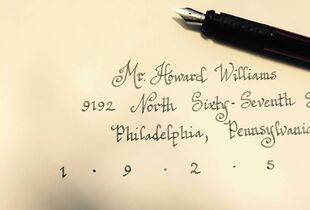 Mr. Howard Williams
9192 North Sixty-Seventh S
Philadelphia, Pennsylvania
1 . 9 . 2 . 5